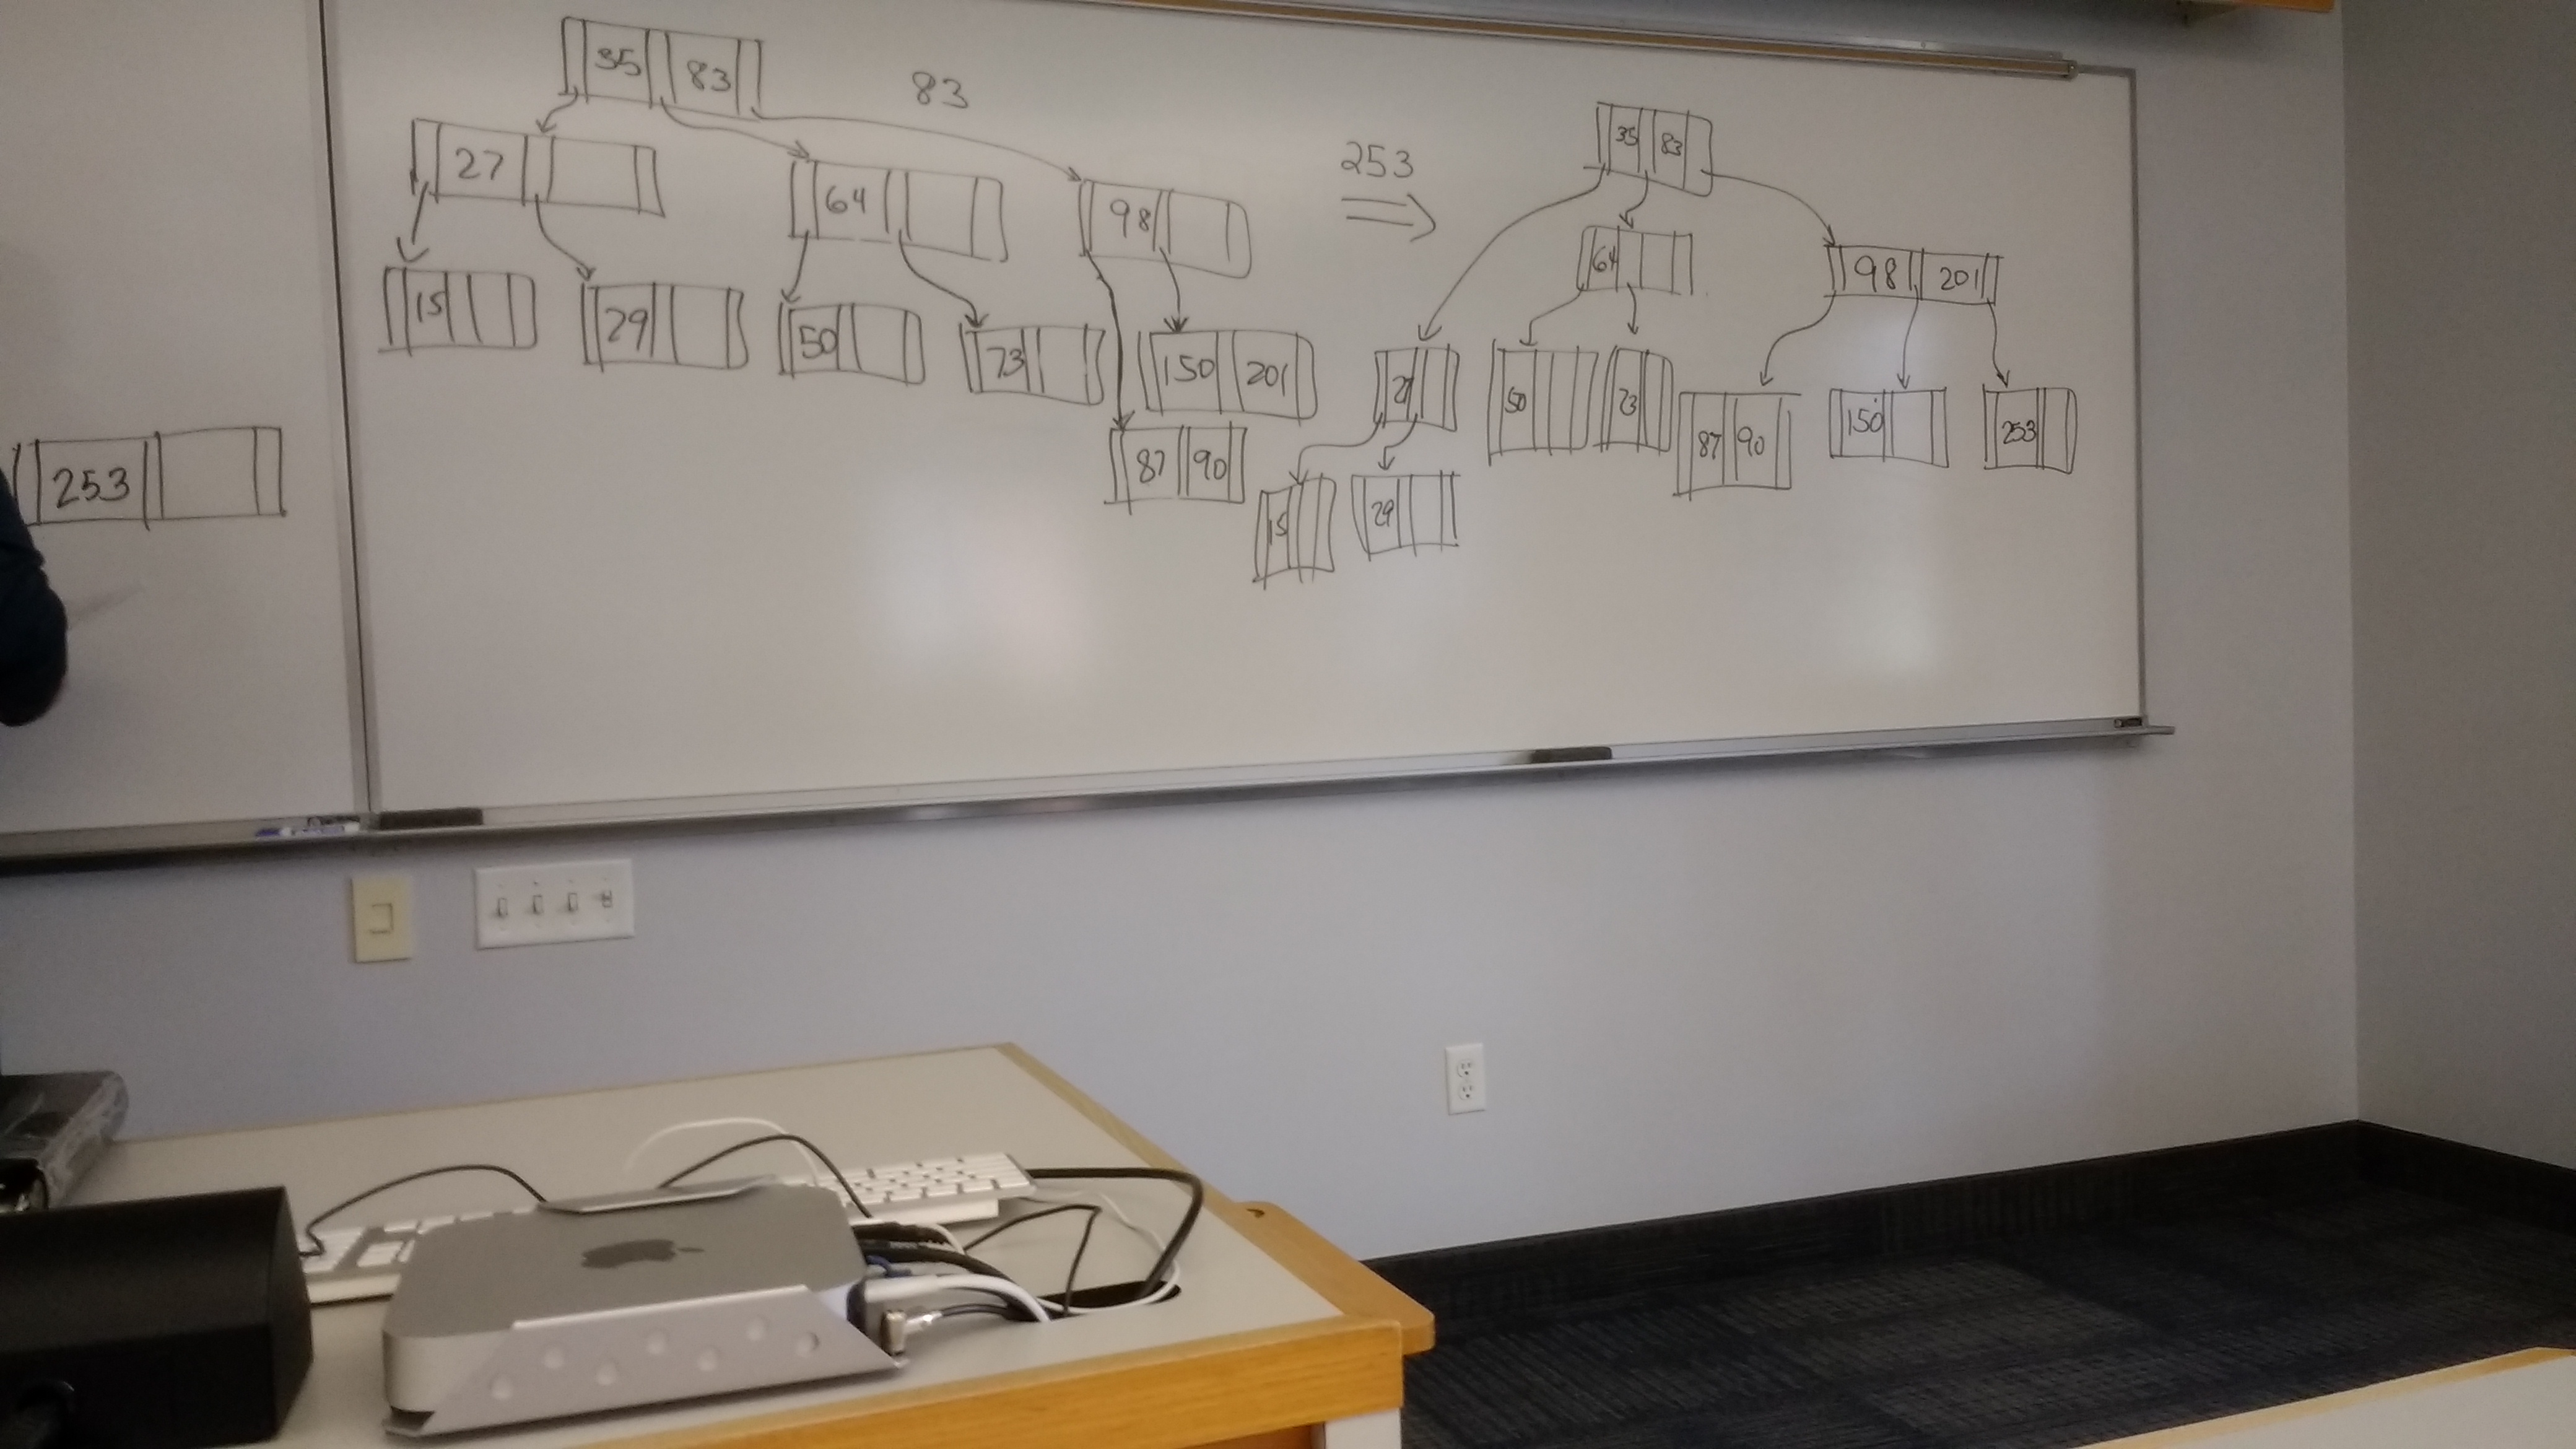 35 83
83
27
64
98
15
29
50
73
150 201
87 90
253
253
35 83
64
98 201
50
73
87 90
150
253
15
29